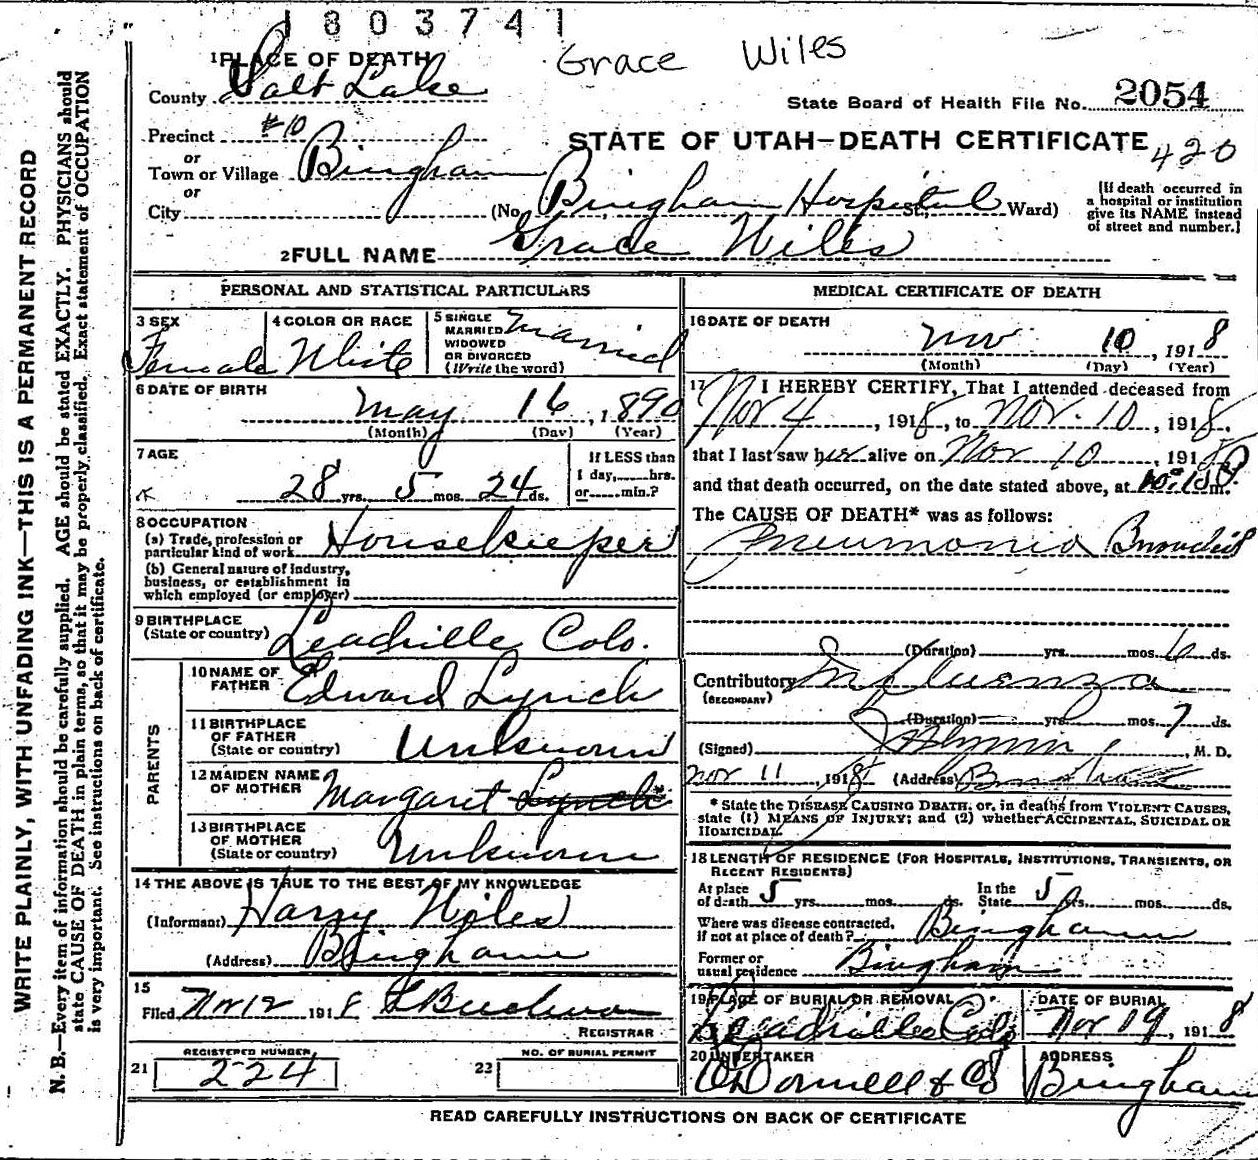 1803741
Grace Wiles
1 PLACE OF DEATH
County Salt Lake
State Board of Health File No. 2054
Precinct #10
STATE OF UTAH—DEATH CERTIFICATE
420
or
Town or Village Bingham
or
City
(No. Bingham Hospital St., Ward)
[If death occurred in
a hospital or institution
give its NAME instead
of street and number.]
2 FULL NAME Grace Wiles
PERSONAL AND STATISTICAL PARTICULARS
3 SEX Female
4 COLOR OR RACE White
5 SINGLE
MARRIED
WIDOWED
OR DIVORCED
(Write the word)
Married
6 DATE OF BIRTH
May 16, 1890
(Month) (Day) (Year)
7 AGE
28 yrs. 5 mos. 24 ds.
If LESS than
1 day, hrs.
or min.?
8 OCCUPATION
(a) Trade, profession or
particular kind of work Housekeeper
(b) General nature of industry,
business, or establishment in
which employed (or employer)
9 BIRTHPLACE
(State or country) Leadville Colo.
PARENTS
10 NAME OF
FATHER Edward Lynch
11 BIRTHPLACE
OF FATHER
(State or country) Unknown
12 MAIDEN NAME
OF MOTHER Margaret Lynch
13 BIRTHPLACE
OF MOTHER
(State or country) Unknown
14 THE ABOVE IS TRUE TO THE BEST OF MY KNOWLEDGE
(Informant) Harry Wiles
(Address) Bingham
15
Filed Nov 12 1918
REGISTRAR
REGISTERED NUMBER
21 224
NO. OF BURIAL PERMIT
22
MEDICAL CERTIFICATE OF DEATH
16 DATE OF DEATH
Nov 10, 1918
(Month) (Day) (Year)
17 I HEREBY CERTIFY, That I attended deceased from
Nov 4, 1918, to Nov. 10, 1918,
that I last saw her alive on Nov 10, 1918
and that death occurred, on the date stated above, at 10:15 P m.
The CAUSE OF DEATH* was as follows:
Pneumonia
(Duration) yrs. mos. 6 ds.
Contributory Influenza
(SECONDARY)
(Duration) yrs. mos. 7 ds.
(Signed) , M. D.
Nov 11, 1918 (Address)
* State the DISEASE CAUSING DEATH, or, in deaths from VIOLENT CAUSES,
state (1) MEANS OF INJURY; and (2) whether ACCIDENTAL, SUICIDAL OR
HOMICIDAL.
18 LENGTH OF RESIDENCE (FOR HOSPITALS, INSTITUTIONS, TRANSIENTS, OR
RECENT RESIDENTS)
At place
of death 5 yrs. mos. ds.
In the
State 5 yrs. mos. ds.
Where was disease contracted,
if not at place of death? Bingham
Former or
usual residence Bingham
19 PLACE OF BURIAL OR REMOVAL
Leadville Colo
DATE OF BURIAL
Nov 19, 1918
20 UNDERTAKER
O'Donnell & Co
ADDRESS
Bingham
READ CAREFULLY INSTRUCTIONS ON BACK OF CERTIFICATE
WRITE PLAINLY, WITH UNFADING INK—THIS IS A PERMANENT RECORD
N. B.—Every item of information should be carefully supplied. AGE should be stated EXACTLY. PHYSICIANS should
state CAUSE OF DEATH in plain terms, so that it may be properly classified. Exact statement of OCCUPATION
is very important. See instructions on back of certificate.